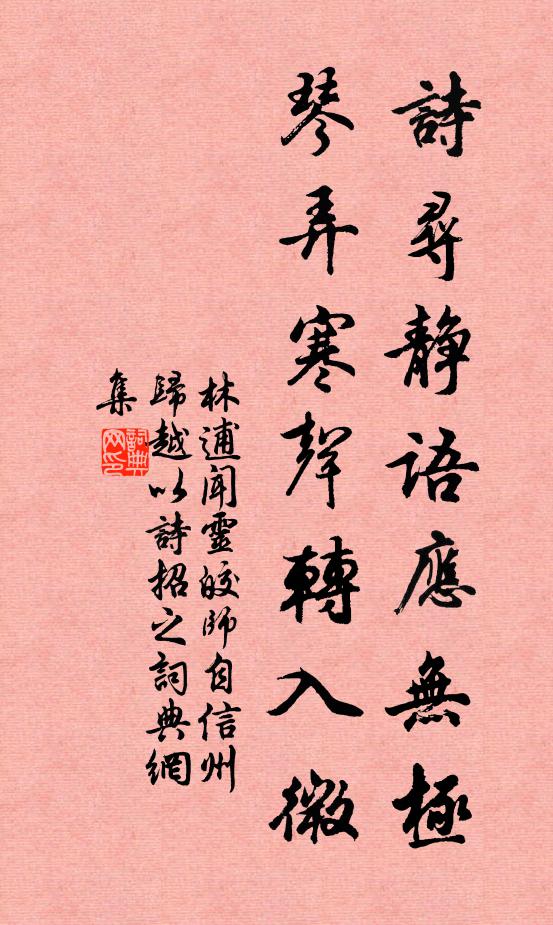 詩尋靜語應無極
琴弄寒聲轉入微
林逋聞靈皎師自信州
歸越以詩招之詞典網
集
詞典
网印